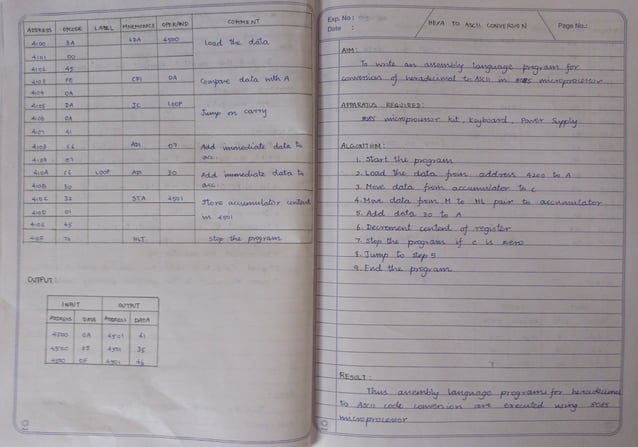 ADDRESS OPCODE LABEL MNEMONICS OPERAND COMMENT
4100 3A LDA 4500 Load the data
4101 00
4102 45
4103 FE CPI 0A Compare data with A
4104 0A
4105 DA JC LOOP Jump on carry
4106 0A
4107 41
4108 C6 ADI 07 Add immediate data to
4109 07 acc.
410A C6 LOOP ADI 30 Add immediate data to
410B 30 acc.
410C 32 STA 4501 Store accumulator content
410D 01 in 4501
410E 45
410F 76 HLT Stop the program
OUTPUT:
INPUT OUTPUT
ADDRESS DATA ADDRESS DATA
4500 0A 4501 41
4500 05 4501 35
4500 0F 4501 46
Exp. No:
Date :
HEXA TO ASCII CONVERSION
Page No.:
AIM:
To write an assembly language program for
conversion of hexadecimal to ASCII in 8085 microprocessor.
APPARATUS REQUIRED:
8085 microprocessor kit, Keyboard, Power Supply
ALGORITHM:
1. Start the program
2. Load the data from address 4200 to A
3. Move data from accumulator to C
4. Move data from M to HL pair to accumulator
5. Add data 30 to A
6. Decrement content of register
7. Stop the program if C is zero
8. Jump to step 5
9. End the program
RESULT:
Thus assembly language program for hexadecimal
to ASCII code conversion are executed using 8085
microprocessor